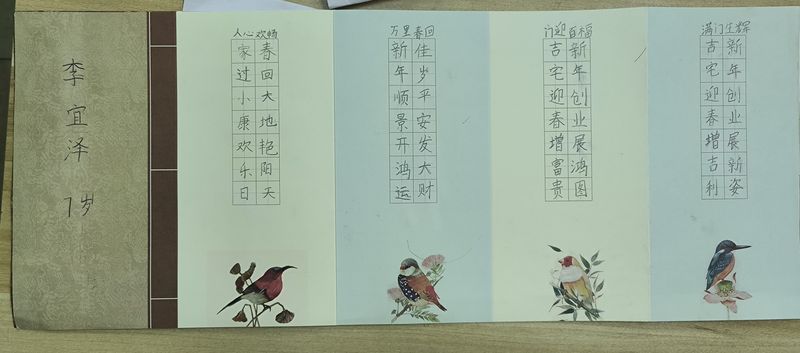 李宜泽
7岁
人心欢畅
春回大地艳阳天
家过小康欢乐日
万里春回
佳岁平安发大财
新年顺景开鸿运
门迎百福
新年创业展鸿图
吉宅迎春增富贵
满门生辉
新年创业展新姿
吉宅迎春增吉利